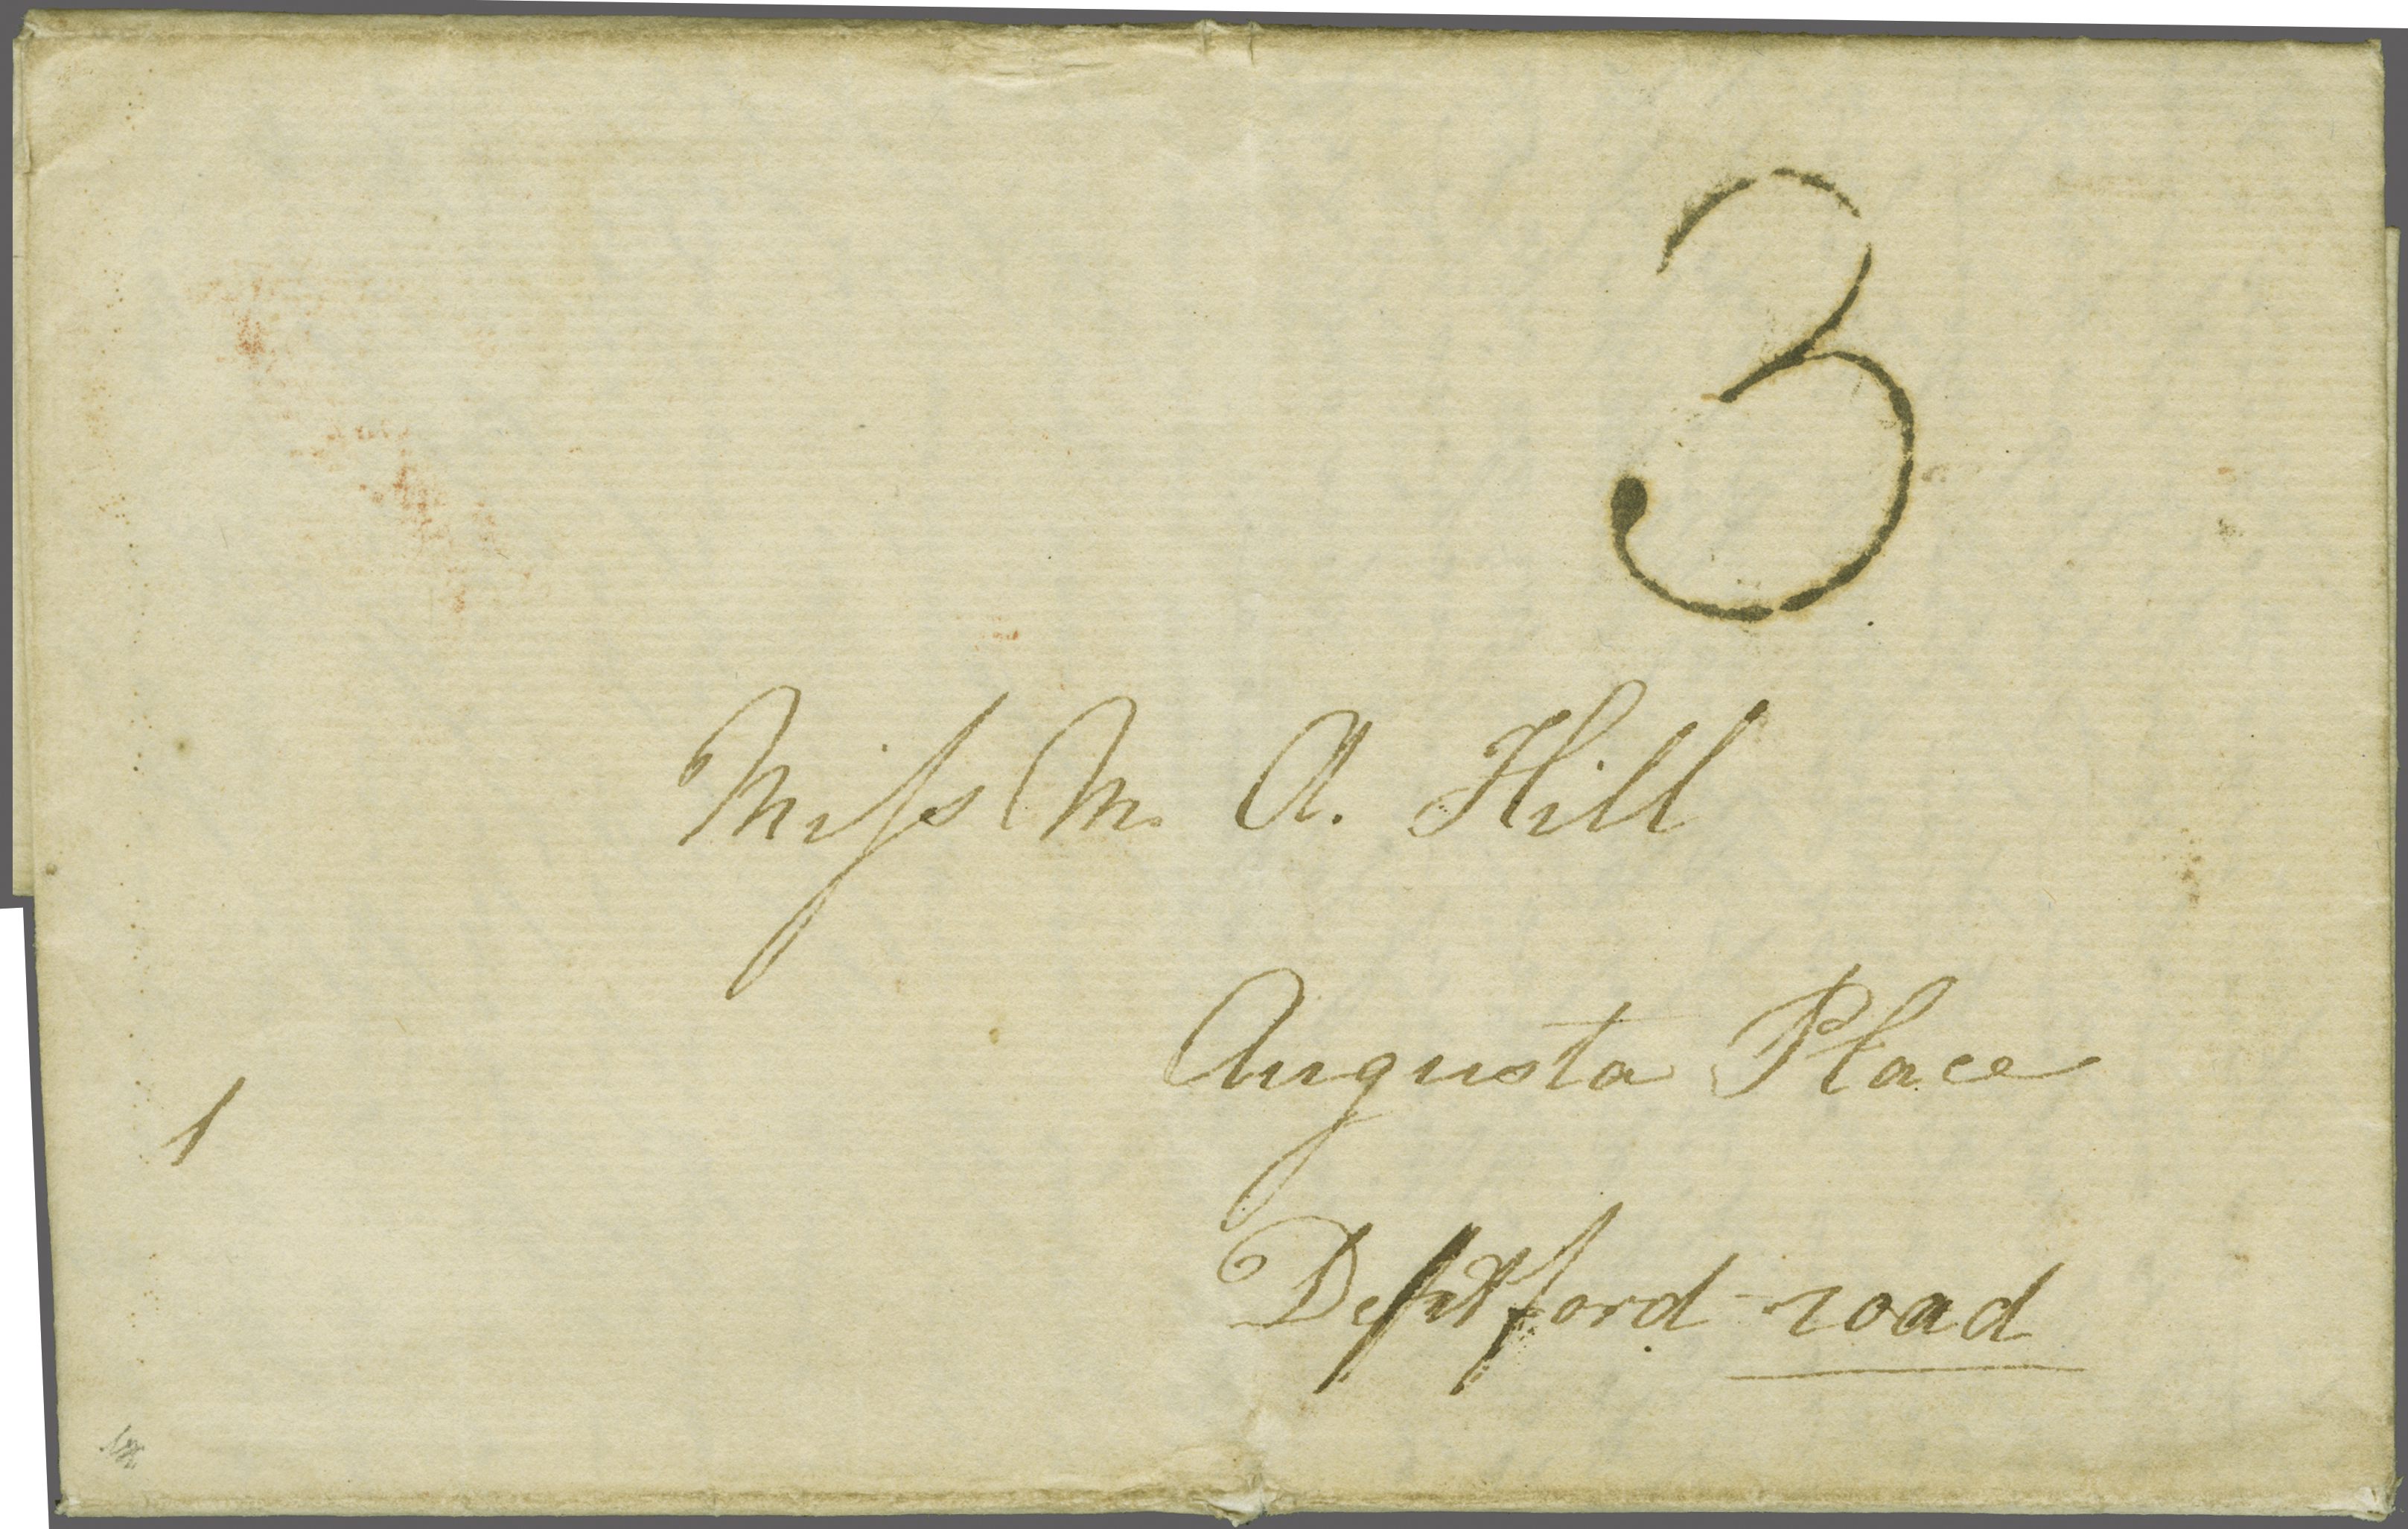 3
Miſs M. A. Hill
Augusta Place
1
Deptford road